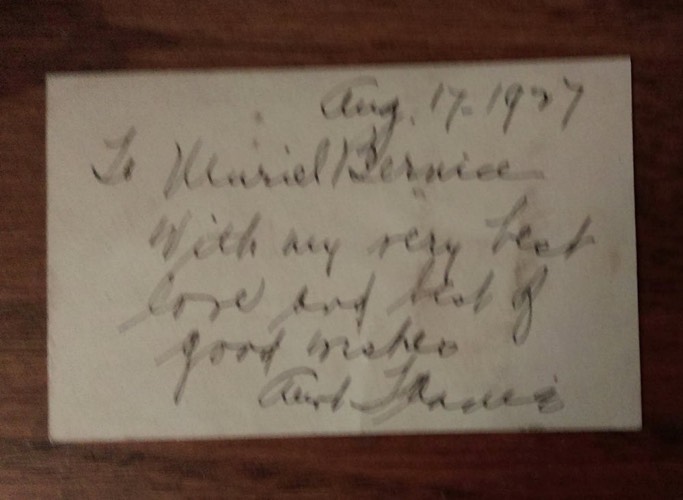 Aug. 17. 1927
To Muriel Bernice
With my very best
love and best of
good wishes
Aunt